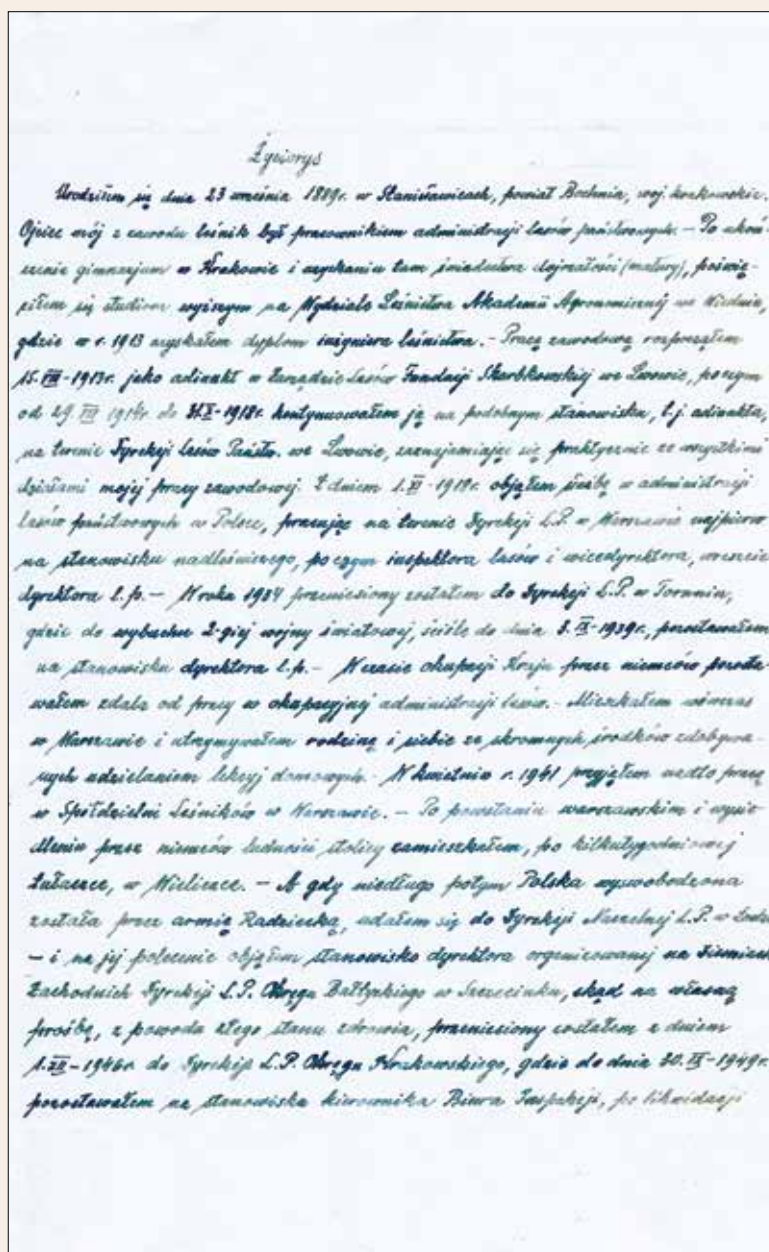 Życiorys
Urodziłem się dnia 23 września 1889r. w Stanisławicach, powiat Bochnia, woj. krakowskie.
Ojciec mój z zawodu leśnik był pracownikiem administracji lasów państwowych. – Po ukoń-
czeniu gimnazjum w Krakowie i uzyskaniu tam świadectwa dojrzałości (matury), poświę-
ciłem się studiom wyższym na Wydziale Leśnictwa Akademii Agronomicznej we Wiedniu,
gdzie w r. 1913 uzyskałem dyplom inżyniera leśnictwa. – Pracę zawodową rozpocząłem
15.VIII-1913r. jako adiunkt w Zarządzie Lasów Fundacji Skarbkowskiej we Lwowie, po czym
od 29 VII 1914r. do 31.X-1918r. kontynuowałem ją na podobnym stanowisku, t.j. adiunkta,
na terenie Dyrekcji Lasów Państw. we Lwowie, zaznajamiając się praktycznie ze wszystkimi
działami mojej pracy zawodowej. Z dniem 1.XI-1918r. objąłem służbę w administracji
lasów państwowych w Polsce, pracując na terenie Dyrekcji L.P. w Warszawie najpierw
na stanowisku nadleśniczego, po czym inspektora lasów i wicedyrektora, wreszcie
dyrektora l.p. – W roku 1934 przeniesiony zostałem do Dyrekcji L.P. w Toruniu,
gdzie do wybuchu 2-giej wojny światowej, ściśle do dnia 3.IX-1939r., pozostawałem
na stanowisku dyrektora l.p. – W czasie okupacji Kraju przez niemców pozosta-
wałem zdala od pracy w okupacyjnej administracji lasów. – Mieszkałem wówczas
w Warszawie i utrzymywałem rodzinę i siebie ze skromnych środków zdobywa-
nych udzielaniem lekcyj domowych. – W kwietniu r. 1941 przyjąłem nadto pracę
w Spółdzielni Leśników w Warszawie. – Po powstaniu warszawskim i wysie-
dleniu przez niemców ludności stolicy zamieszkałem, po kilkutygodniowej
tułaczce, w Wieliczce. – A gdy niedługo potym Polska wyswobodzona
została przez armię Radziecką, udałem się do Dyrekcji Naczelnej L.P. w Łodzi
– i na jej polecenie objąłem stanowisko dyrektora organizowanej na Ziemiach
Zachodnich Dyrekcji L.P. Okręgu Bałtyckiego w Szczecinku, skąd na własną
prośbę, z powodu złego stanu zdrowia, przeniesiony zostałem z dniem
1.XII-1946r. do Dyrekcji L.P. Okręgu Krakowskiego, gdzie do dnia 30.IX-1949r.
pozostawałem na stanowisku kierownika Biura Inspekcji, po likwidacji